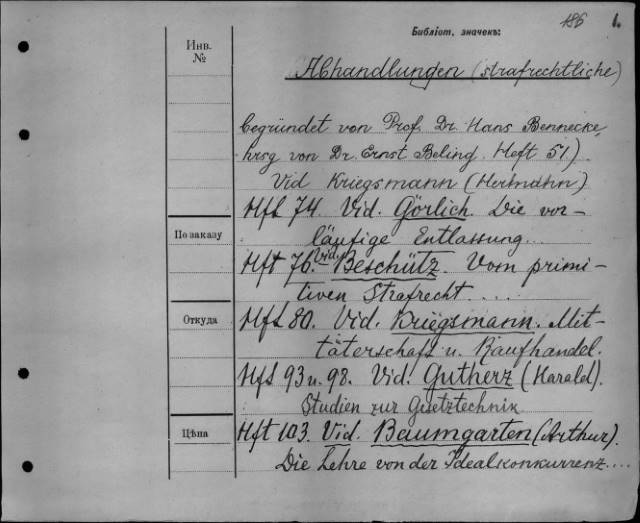 186 1.
Библіот. значекъ:
Инв.
№
Abhandlungen (strafrechtliche)
begründet von Prof. Dr. Hans Bennecke,
hrsg von Dr. Ernst Beling. Heft 51.)
Vid Kriegsmann (Hermann)
Hft 74. Vid. Görlich. Die vor-
läufige Entlassung...
По заказу
Hft 76. Vid. Beschütz. Vom primi-
tiven Strafrecht....
Откуда
Hft 80. Vid. Kriegsmann. Mit-
täterschaft u. Raufhandel.
Hft 93 u. 98. Vid. Gutherz (Harald).
Studien zur Gsetztechnik
Цѣна
Hft 103. Vid. Baumgarten (Arthur).
Die Lehre von der Idealkonkurrenz....